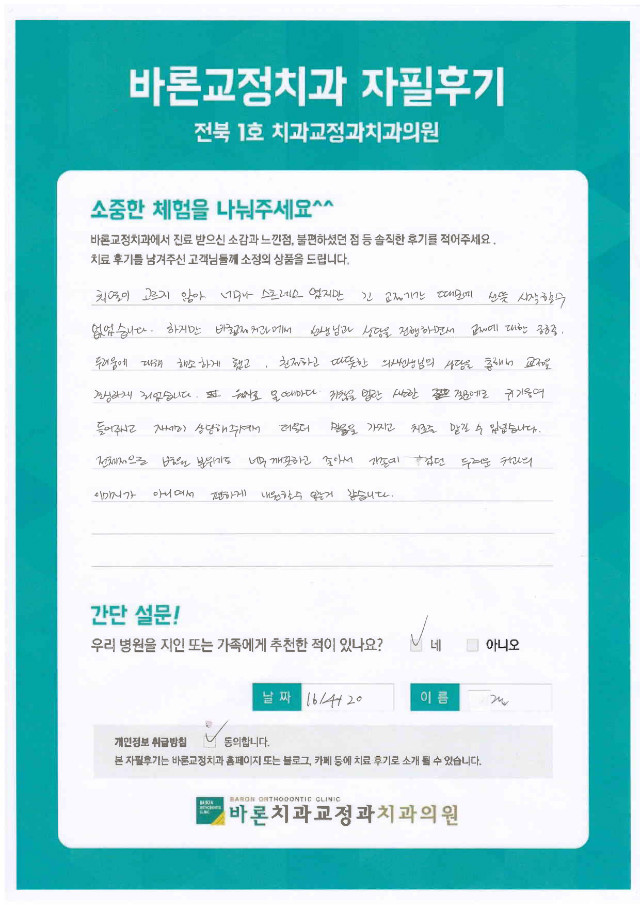 바론교정치과 자필후기
전북 1호 치과교정과치과의원
소중한 체험을 나눠주세요^^
바론교정치과에서 진료 받으신 소감과 느낀점, 불편하셨던 점 등 솔직한 후기를 적어주세요.
치료 후기를 남겨주신 고객님들께 소정의 상품을 드립니다.
치열이 고르지 않아 너무나 스트레스 였지만 긴 교정기간 때문에 선뜻 시작할수
없었습니다. 하지만 바론교정치과에서 선생님과 상담을 진행하면서 교정에 대한 궁금증,
두려움에 대해 해소하게 됐고, 친절하고 따뜻한 의사선생님의 상담을 통해서 교정을
결정하게 되었습니다. 올때마다 귀기울여
들어주시고 자세히 상담해주셔서 더욱더 믿음을 가지고 치료를 받을 수 있었습니다.
전체적으로 병원 분위기도 너무 깨끗하고 좋아서 두려운 치과의
이미지가 아니여서 편하게 내원할수 있는거 같습니다.
간단 설문!
우리 병원을 지인 또는 가족에게 추천한 적이 있나요? 네 아니오
날 짜 16/4/20 이 름
개인정보 취급방침 동의합니다.
본 자필후기는 바론교정치과 홈페이지 또는 블로그, 카페 등에 치료 후기로 소개 될 수 있습니다.
BARON ORTHODONTIC CLINIC
바론치과교정과치과의원